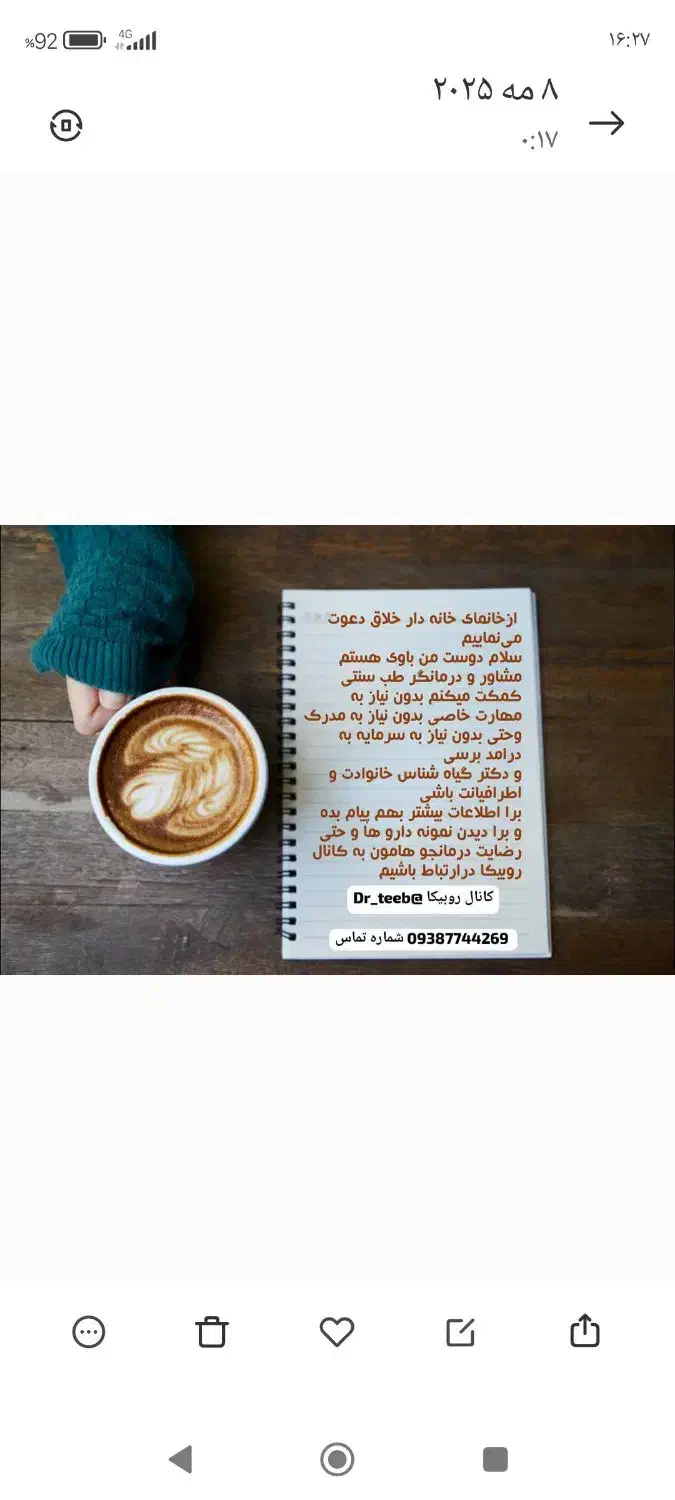 %92
4G
۱۶:۲۷
۸ مه ۲۰۲۵
۰:۱۷
ازخانمای خانه دار خلاق دعوت
می‌نماییم
سلام دوست من باوی هستم
مشاور و درمانگر طب سنتی
کمکت میکنم بدون نیاز به
مهارت خاصی بدون نیاز به مدرک
وحتی بدون نیاز به سرمایه به
درامد برسی
و دکتر گیاه شناس خانوادت و
اطرافیانت باشی
برا اطلاعات بیشتر بهم پیام بده
و برا دیدن نمونه دارو ها و حتی
رضایت درمانجو هامون به کانال
روبیکا درارتباط باشیم
کانال روبیکا @Dr_teeb
09387744269 شماره تماس